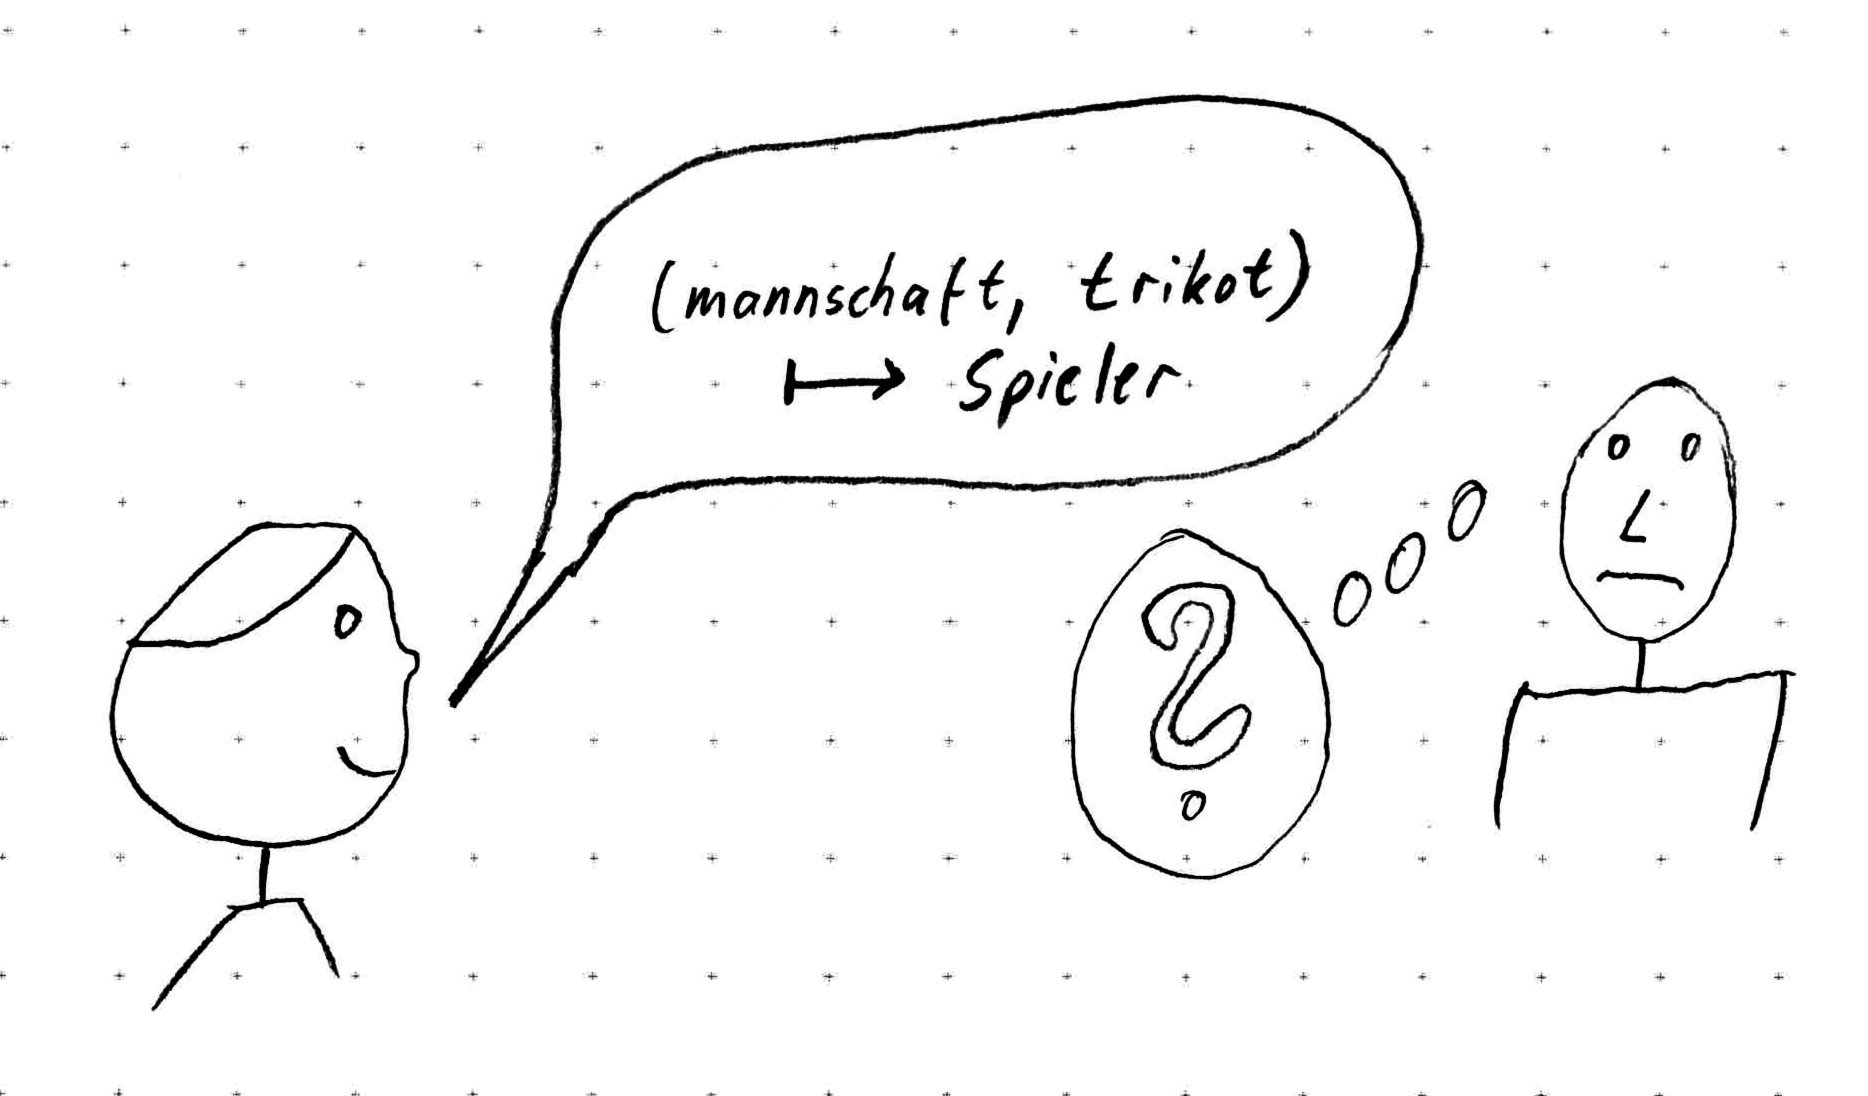 (mannschaft, trikot)
↦ Spieler
?